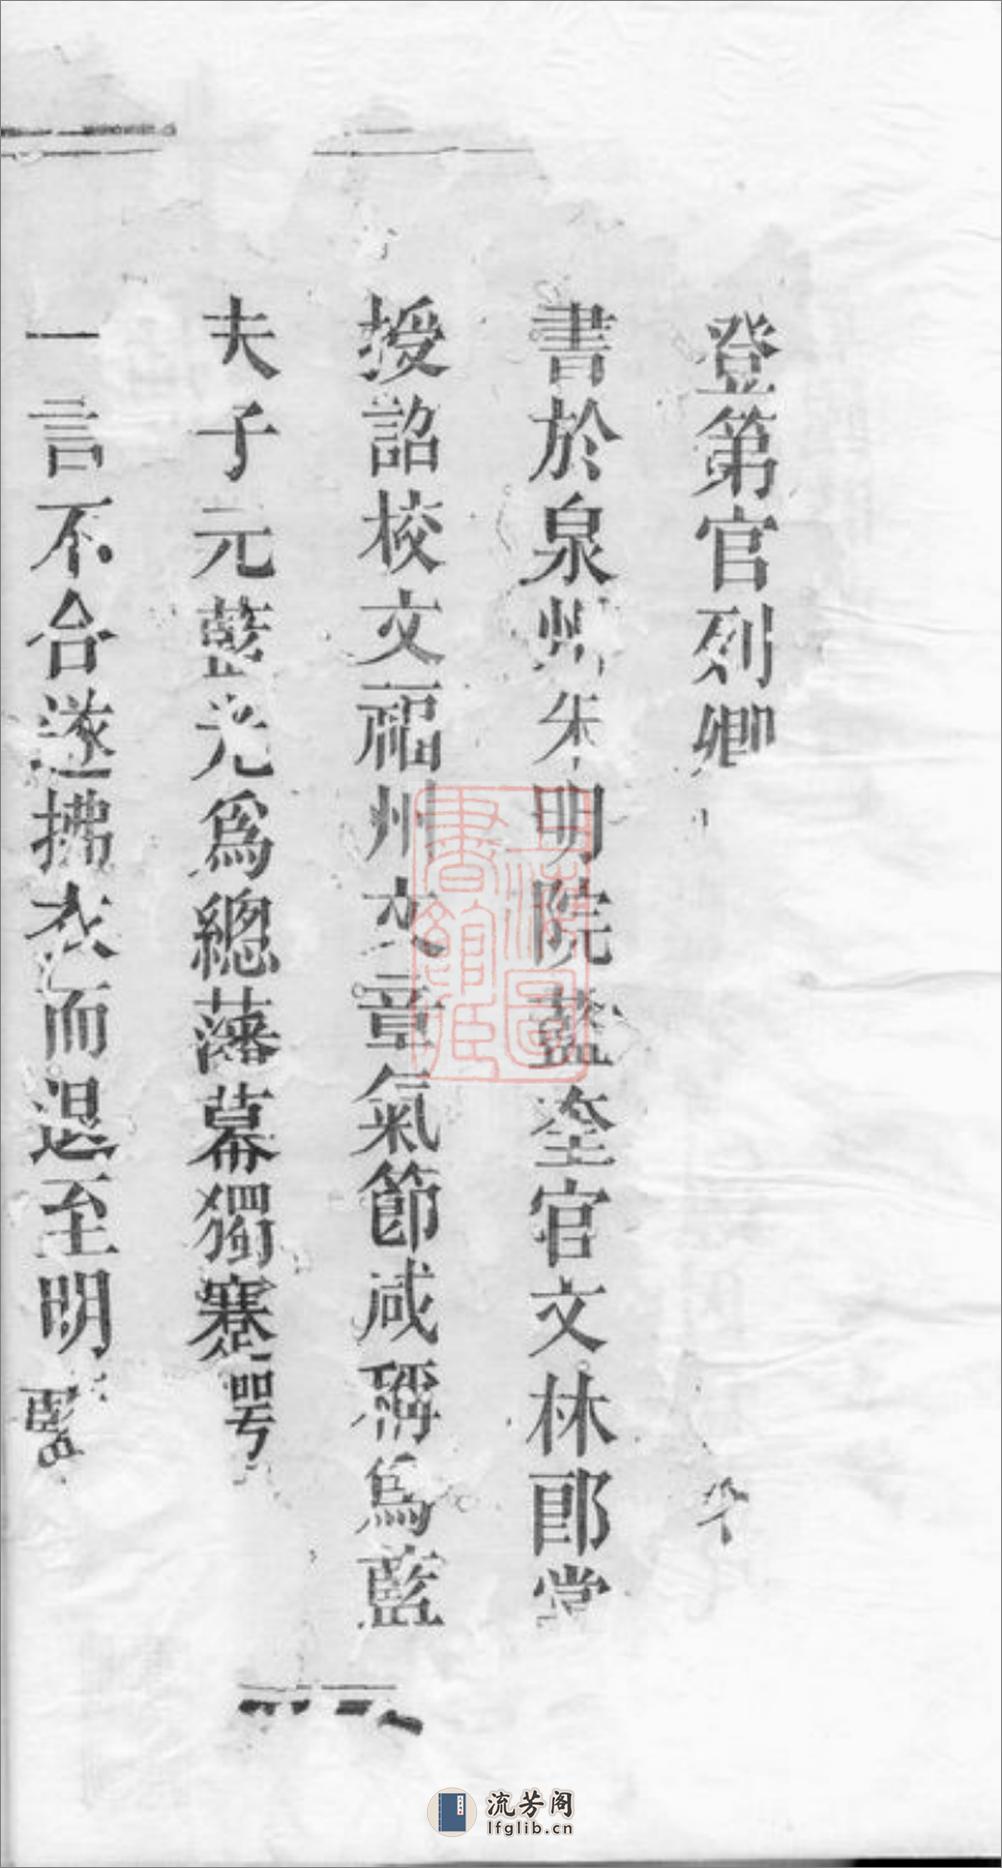 登第官列卿
書於泉州朱明院藍奎官文林郎嘗
授詔校文福州文章氣節咸稱爲藍
夫子元藍光爲總藩幕獨蹇諤
一言不合遂拂衣而退至明藍
流芳阁
lfglib.cn